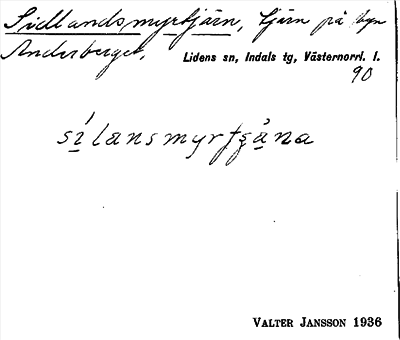 Sidlandsmyrtjärn, tjärn på byn
Anderberget, Lidens sn, Indals tg, Västernorrl. l.
90
sílansmyrtʂäna
VALTER JANSSON 1936